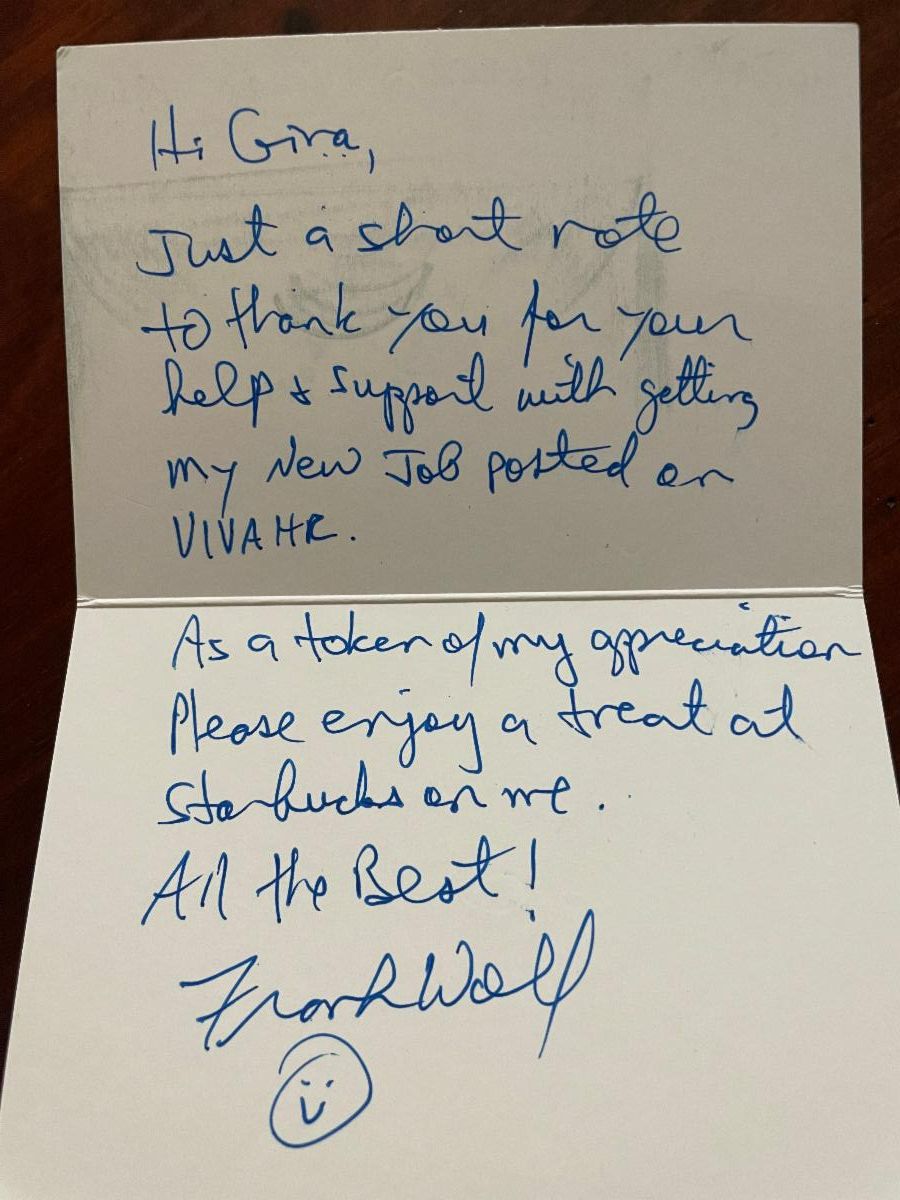 Hi Gina,
Just a short note
to thank you for your
help & support with getting
my New Job posted on
VIVAHR.
As a token of my appreciation
Please enjoy a treat at
Starbucks on me.
All the Best!
Frank Wolf